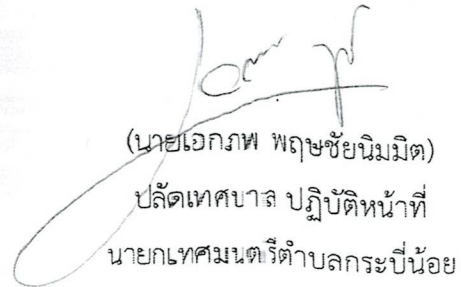 (นายเอกภพ พฤษชัยนิมมิต)
ปลัดเทศบาล ปฏิบัติหน้าที่
นายกเทศมนตรีตำบลกระบี่น้อย